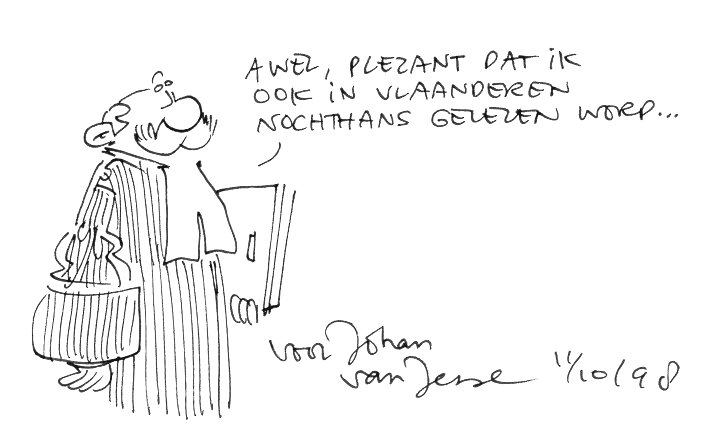 AWEL, PLEZANT DAT IK
OOK IN VLAANDEREN
NOCHTHANS GELEZEN WORD...
voor Johan
van Jesse 11/10/98